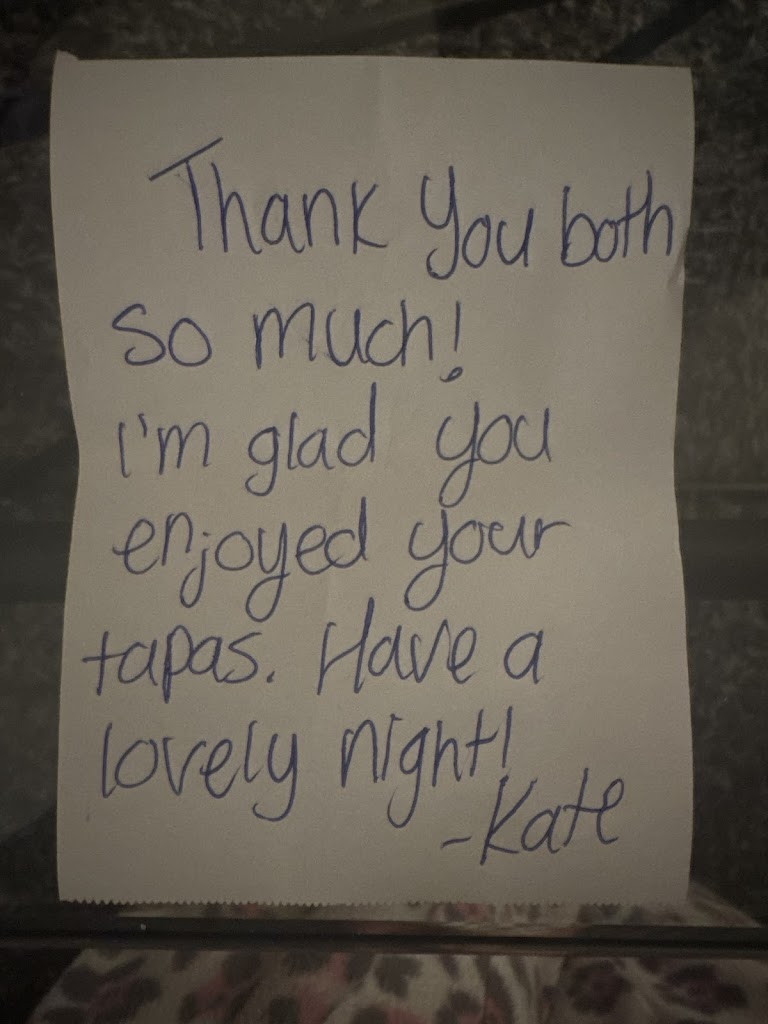 Thank You both
so much!
I'm glad you
enjoyed your
tapas. Have a
lovely night!
-Kate